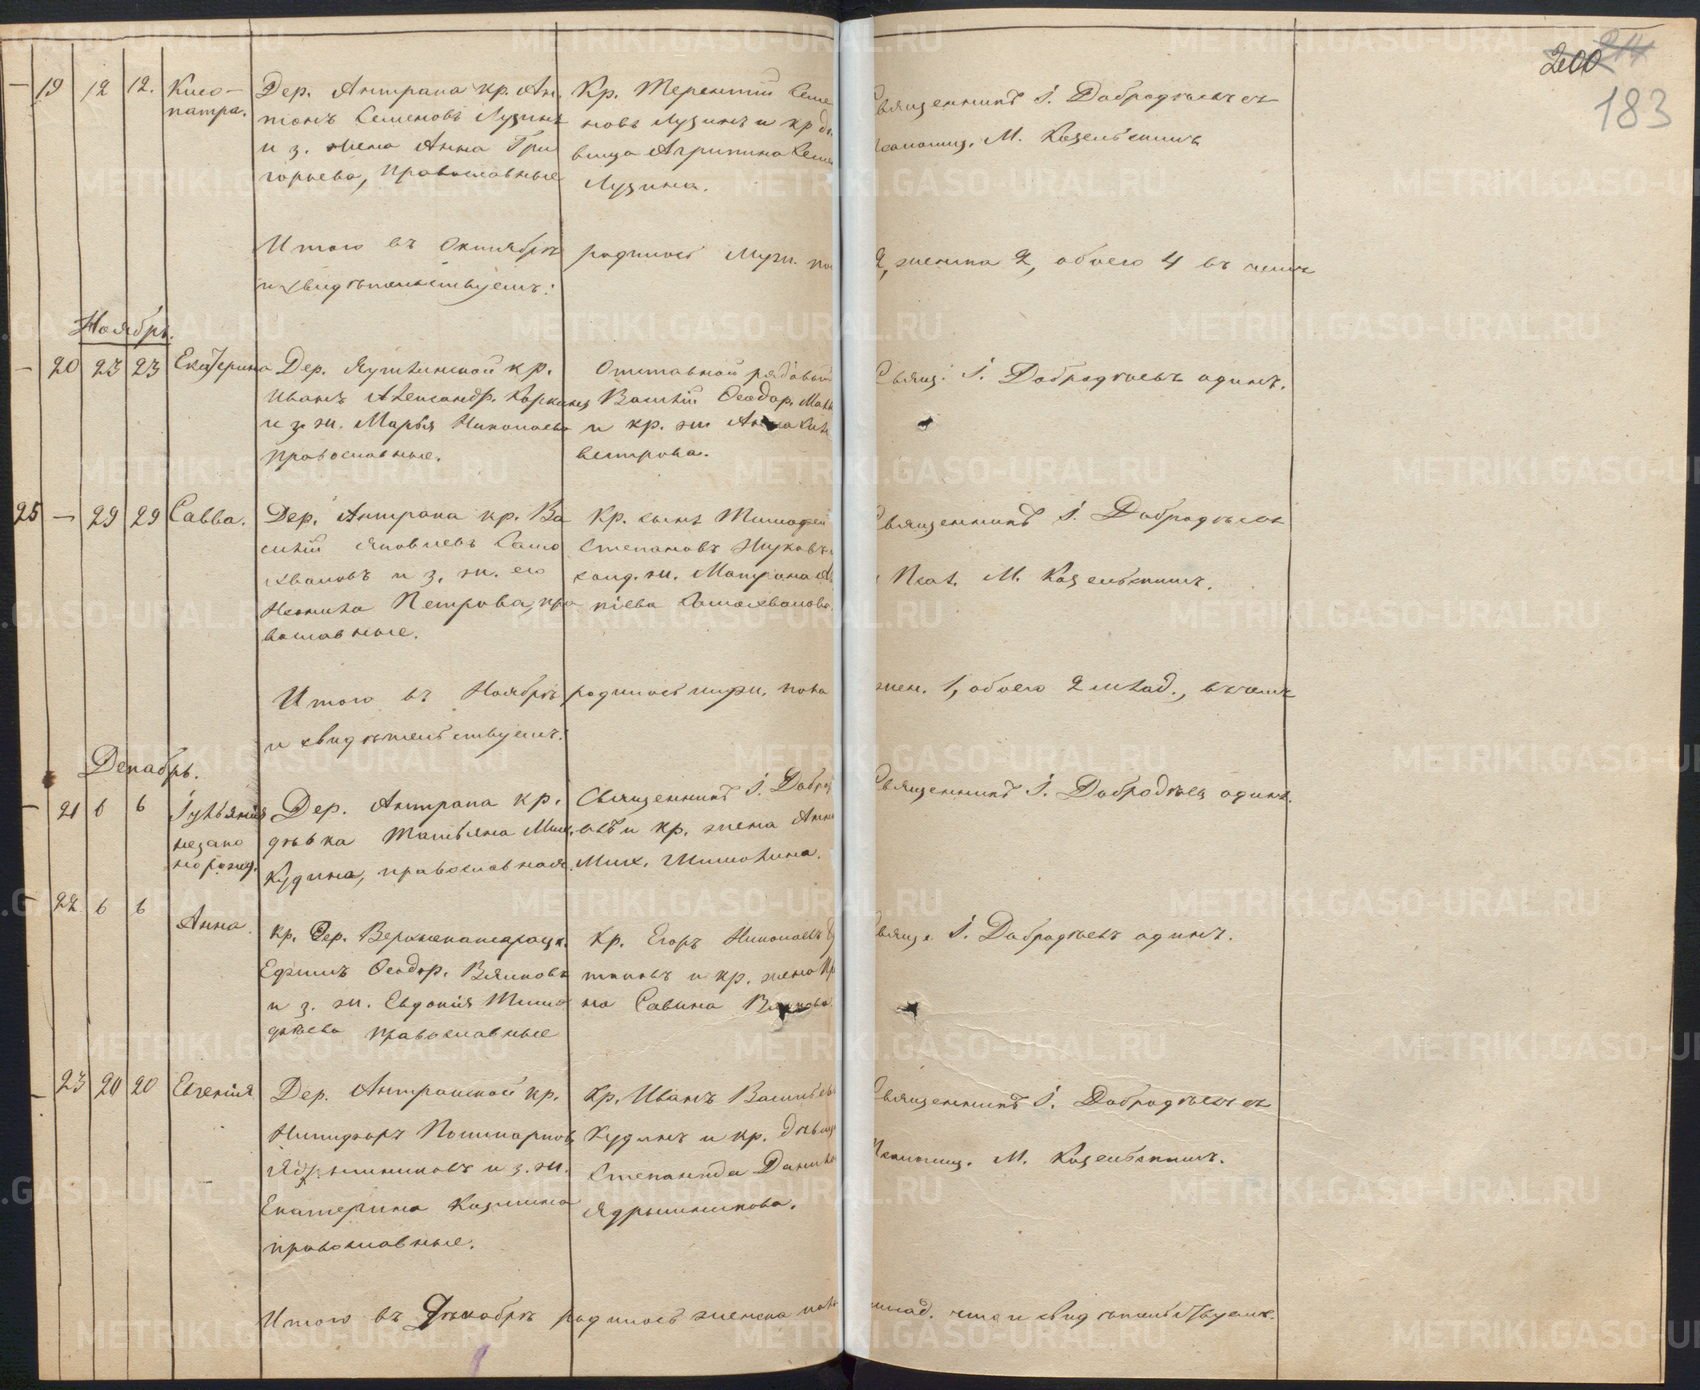 200
183
19 12 12. Клео-
патра.
Дер. Антрапа кр. Ан
тонъ Семеновъ Лузинъ
и з. жена Анна Гри
горьева, православные
Кр. Терентий Семе
новъ Лузинъ и кр дѣ
вица Агрипина Семе
Лузина.
Священникъ I. Добродѣевъ съ
псаломщ. М. Козельскимъ
Итого въ Октябрѣ родилось муж. по
2, женска 2, обоего 4 въ чемъ
и свидѣтельствуемъ:
Ноябрь.
20 23 23 Екатерина
Дер. кр.
Иванъ Александр.
и з. ж. Марья Николаева
православные.
Отставной рядовый
Василій Ѳеодор.
и кр. ж. Анна Сил
вестрова.
Свящ. I. Добродѣевъ одинъ.
25 — 29 29 Савва.
Дер. Антрапа кр. Ва
силій Яковлевъ Само
хваловъ и з. ж. его
Петрова, пра
вославные.
Кр. сынъ Тимофей
Степановъ
солд. ж. Матрона
Самохвалова.
Священникъ I. Добродѣевъ
и Псал. М. Козельскимъ.
Итого въ Ноябрѣ родилось муж. пола
жен. 1, обоего 2 млад., въ чемъ
и свидѣтельствуемъ.
Декабрь.
21 6 6 Iуліанія
незако
норожд.
Дер. Антрапа кр.
дѣвка Татьяна Мих.
Кудина, православная.
Священникъ I. Доброд
евъ и кр. жена Анна
Мих.
Священникъ I. Добродѣевъ одинъ.
22 6 6
Анна.
кр. дер.
Ефимъ Ѳеодор. Вялковъ
и з. ж. Евдокія Тимо
фѣева православные
Кр. Егоръ Николаевъ
и кр. жена
Савина Вялкова
Свящ. I. Добродѣевъ одинъ.
23 20 20 Евгенія
Дер. Антрапской кр.
Никифоръ Поликарповъ
Ядрышниковъ и з. ж.
Екатерина Козмина
православные.
Кр. Иванъ Васильевъ
Кудинъ и кр. дѣвица
Степанида Данил
Ядрышникова.
Священникъ I. Добродѣевъ съ
Псаломщ. М. Козельскимъ.
Итого въ Декабрѣ родилось женска пола
млад. что и свидѣтельствуемъ.
METRIKI.GASO-URAL.RU